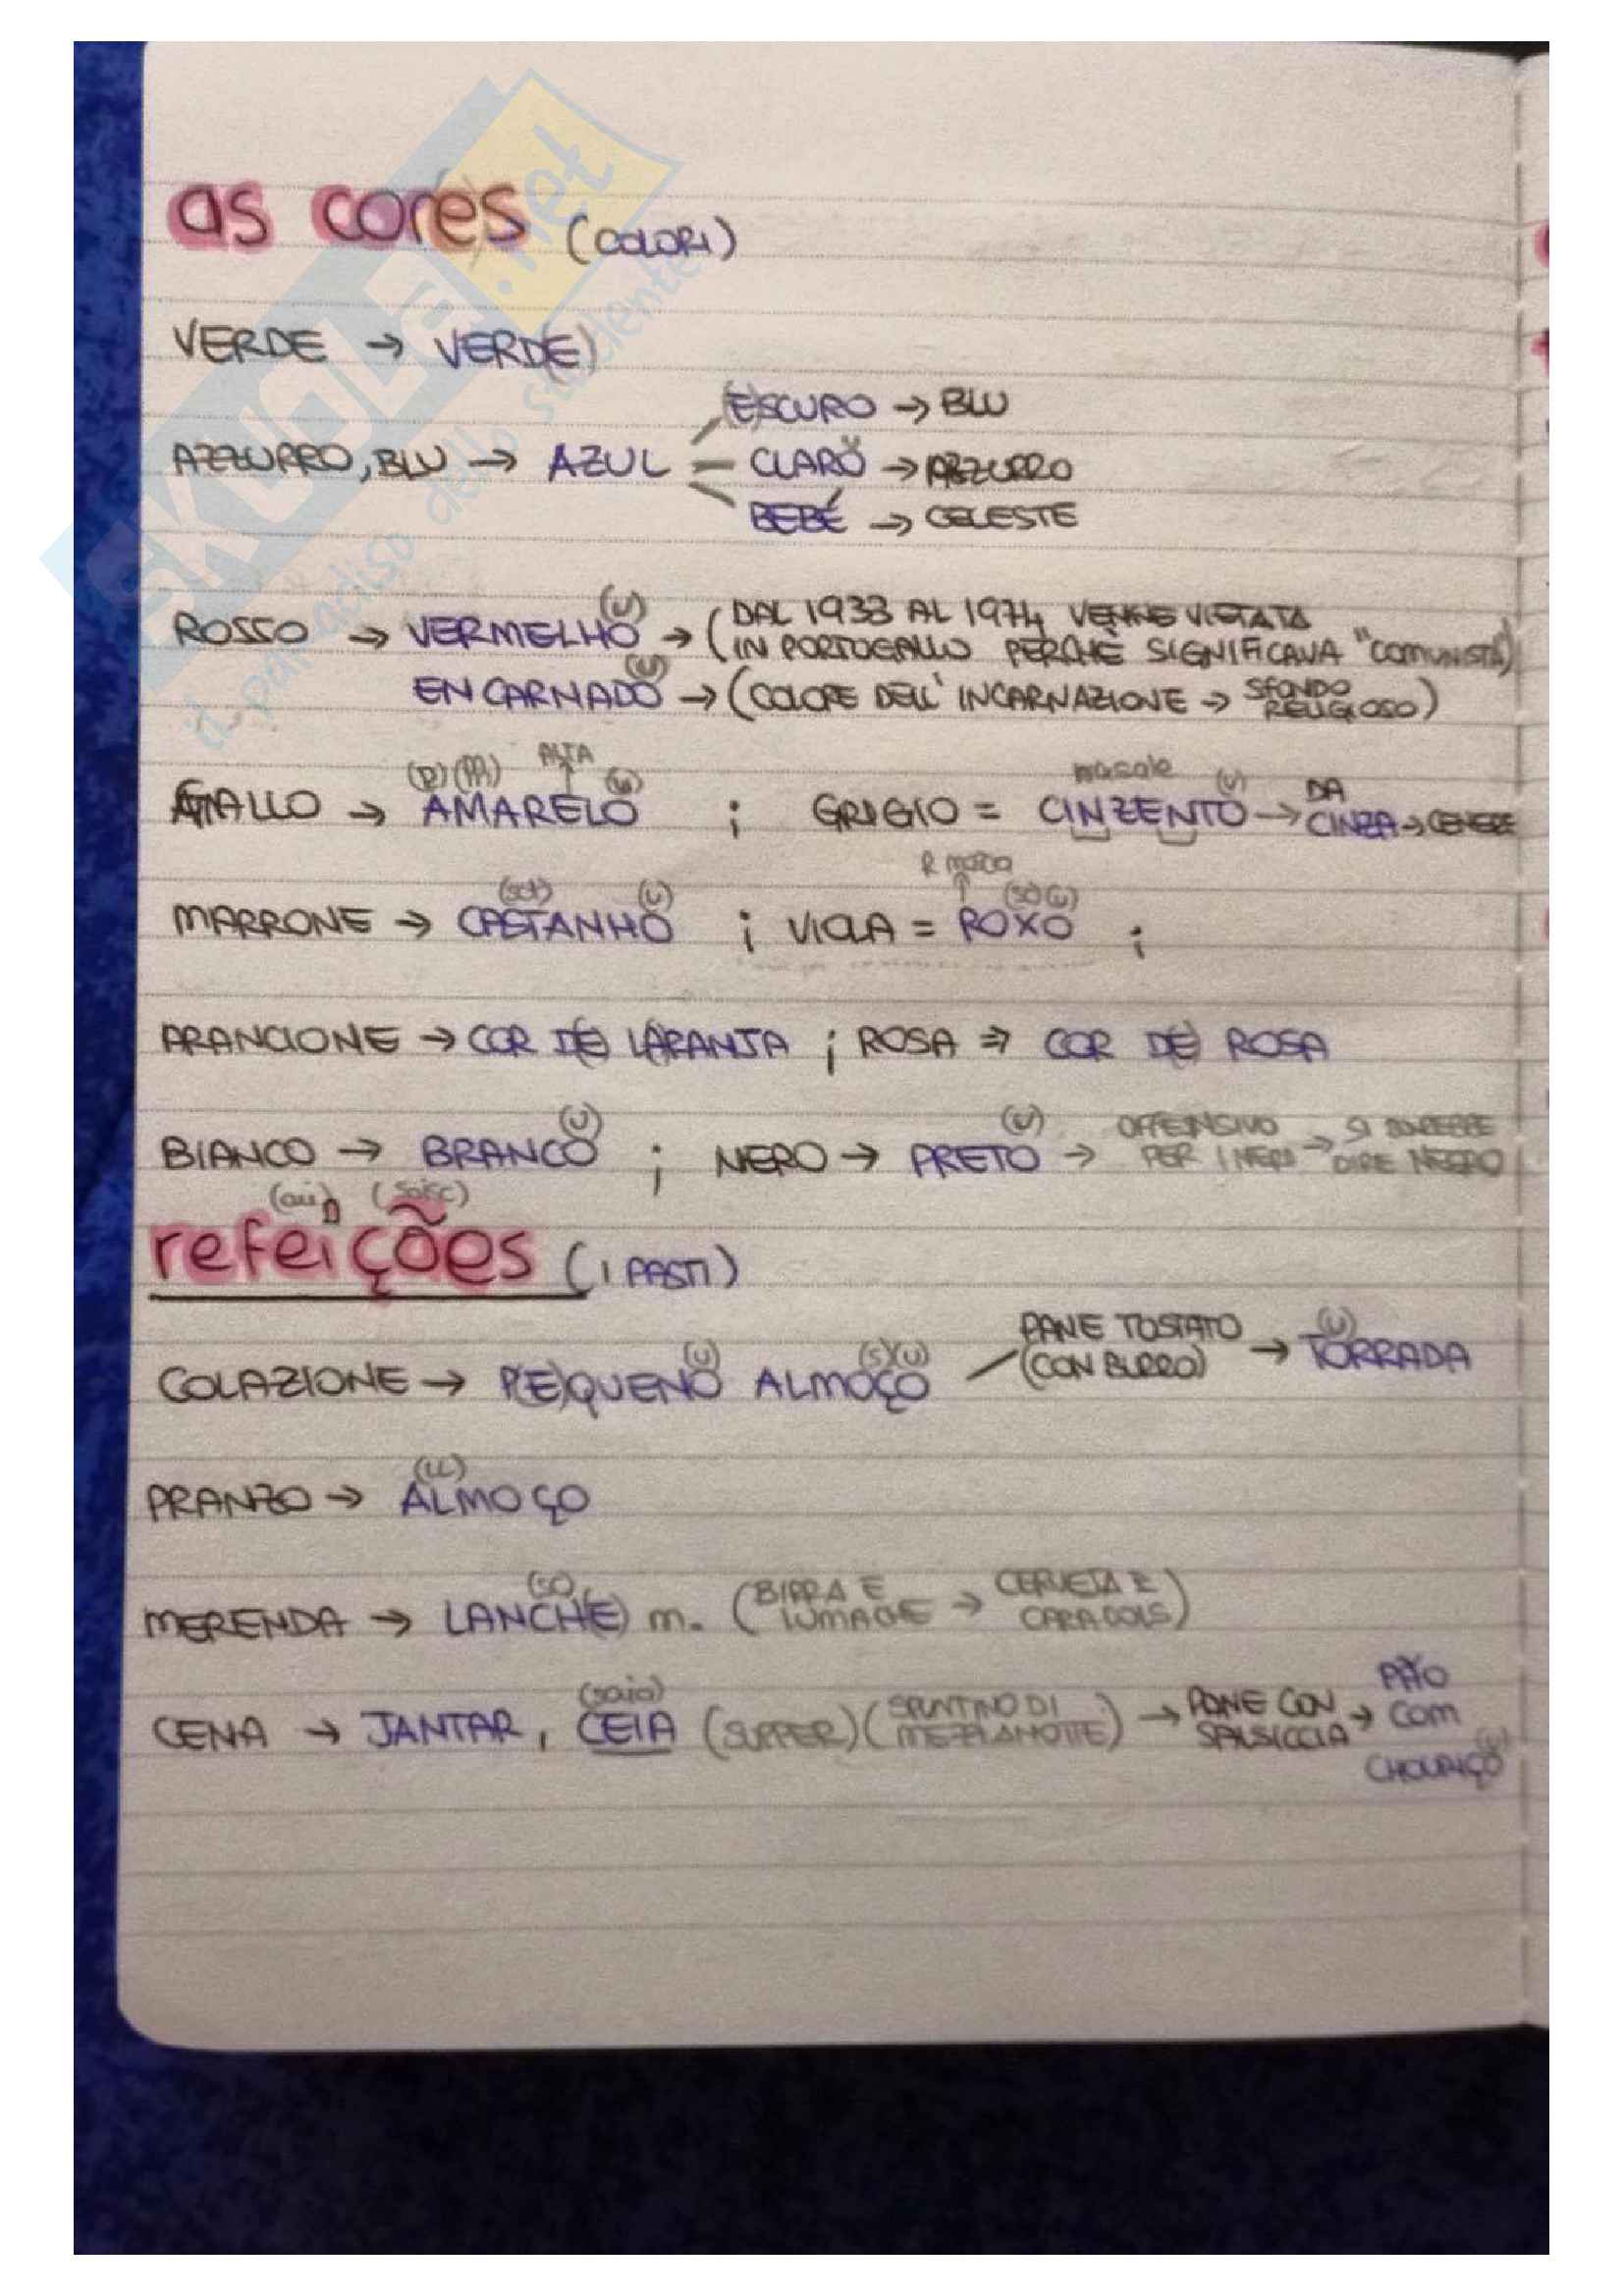 as cores (COLORI)
VERDE → VERD(E)
(E)SCURO → BLU
AZZURRO, BLU → AZUL — CLARO → AZZURRO
BEBÉ → CELESTE
(U)
ROSSO → VERMELHO → (DAL 1933 AL 1974 VENNE VIETATA
IN PORTOGALLO PERCHÈ SIGNIFICAVA "COMUNISTA")
(U)
ENCARNADO → (COLORE DELL'INCARNAZIONE → SFONDO RELIGIOSO)
ALTA (U) nasale (U)
GIALLO → AMARELO ; GRIGIO = CINZENTO → DA CINZA → CENERE
(U) (U)
MARRONE → CASTANHO ; VIOLA = ROXO ;
ARANCIONE → COR D(E) LARANJA ; ROSA → COR D(E) ROSA
(U) (U)
BIANCO → BRANCO ; NERO → PRETO → OFFENSIVO PER I NERI → SI DOVREBBE DIRE NEGRO
refeições (I PASTI)
PANE TOSTATO (U)
(U) (S)(U) (CON BURRO) → TORRADA
COLAZIONE → P(E)QUENO ALMOÇO
(LL)
PRANZO → ALMOÇO
MERENDA → LANCH(E) m. (BIRRA E LUMACHE → CERVEJA E CARACOLS)
CENA → JANTAR, CEIA (SUPPER) (SPUNTINO DI MEZZANOTTE) → PANE CON SALSICCIA → PÃO com
(U)
CHOURIÇO
skuola.net
il paradiso dello studente